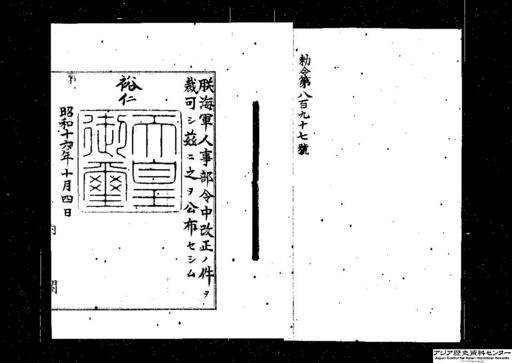 勅令第八百九十七號
朕海軍人事部令中改正ノ件ヲ
裁可シ茲ニ之ヲ公布セシム
裕仁
天皇
御璽
昭和十六年十月四日
内
閣
アジア歴史資料センター
Japan Center for Asian Historical Records